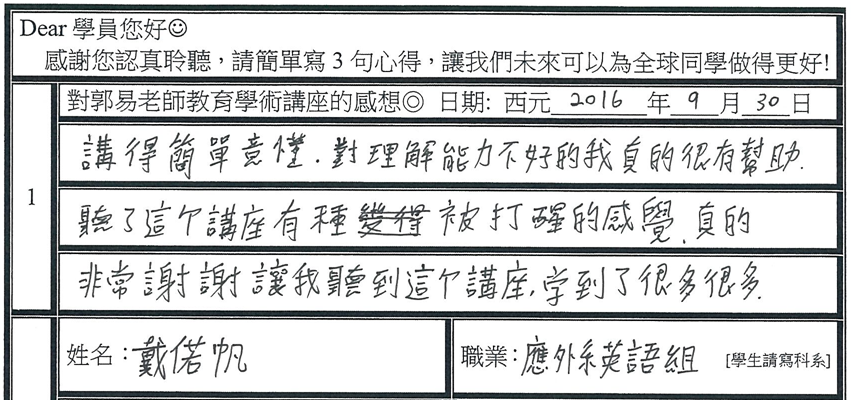 Dear 學員您好☺
感謝您認真聆聽，請簡單寫 3 句心得，讓我們未來可以為全球同學做得更好!
對郭易老師教育學術講座的感想◎ 日期: 西元 2016 年 9 月 30 日
1
講得簡單意懂.對理解能力不好的我真的很有幫助.
聽了這个講座有種變得被打醒的感覺,真的
非常謝謝讓我聽到這个講座,学到了很多很多.
姓名：戴偌帆
職業：應外系英語組 [學生請寫科系]